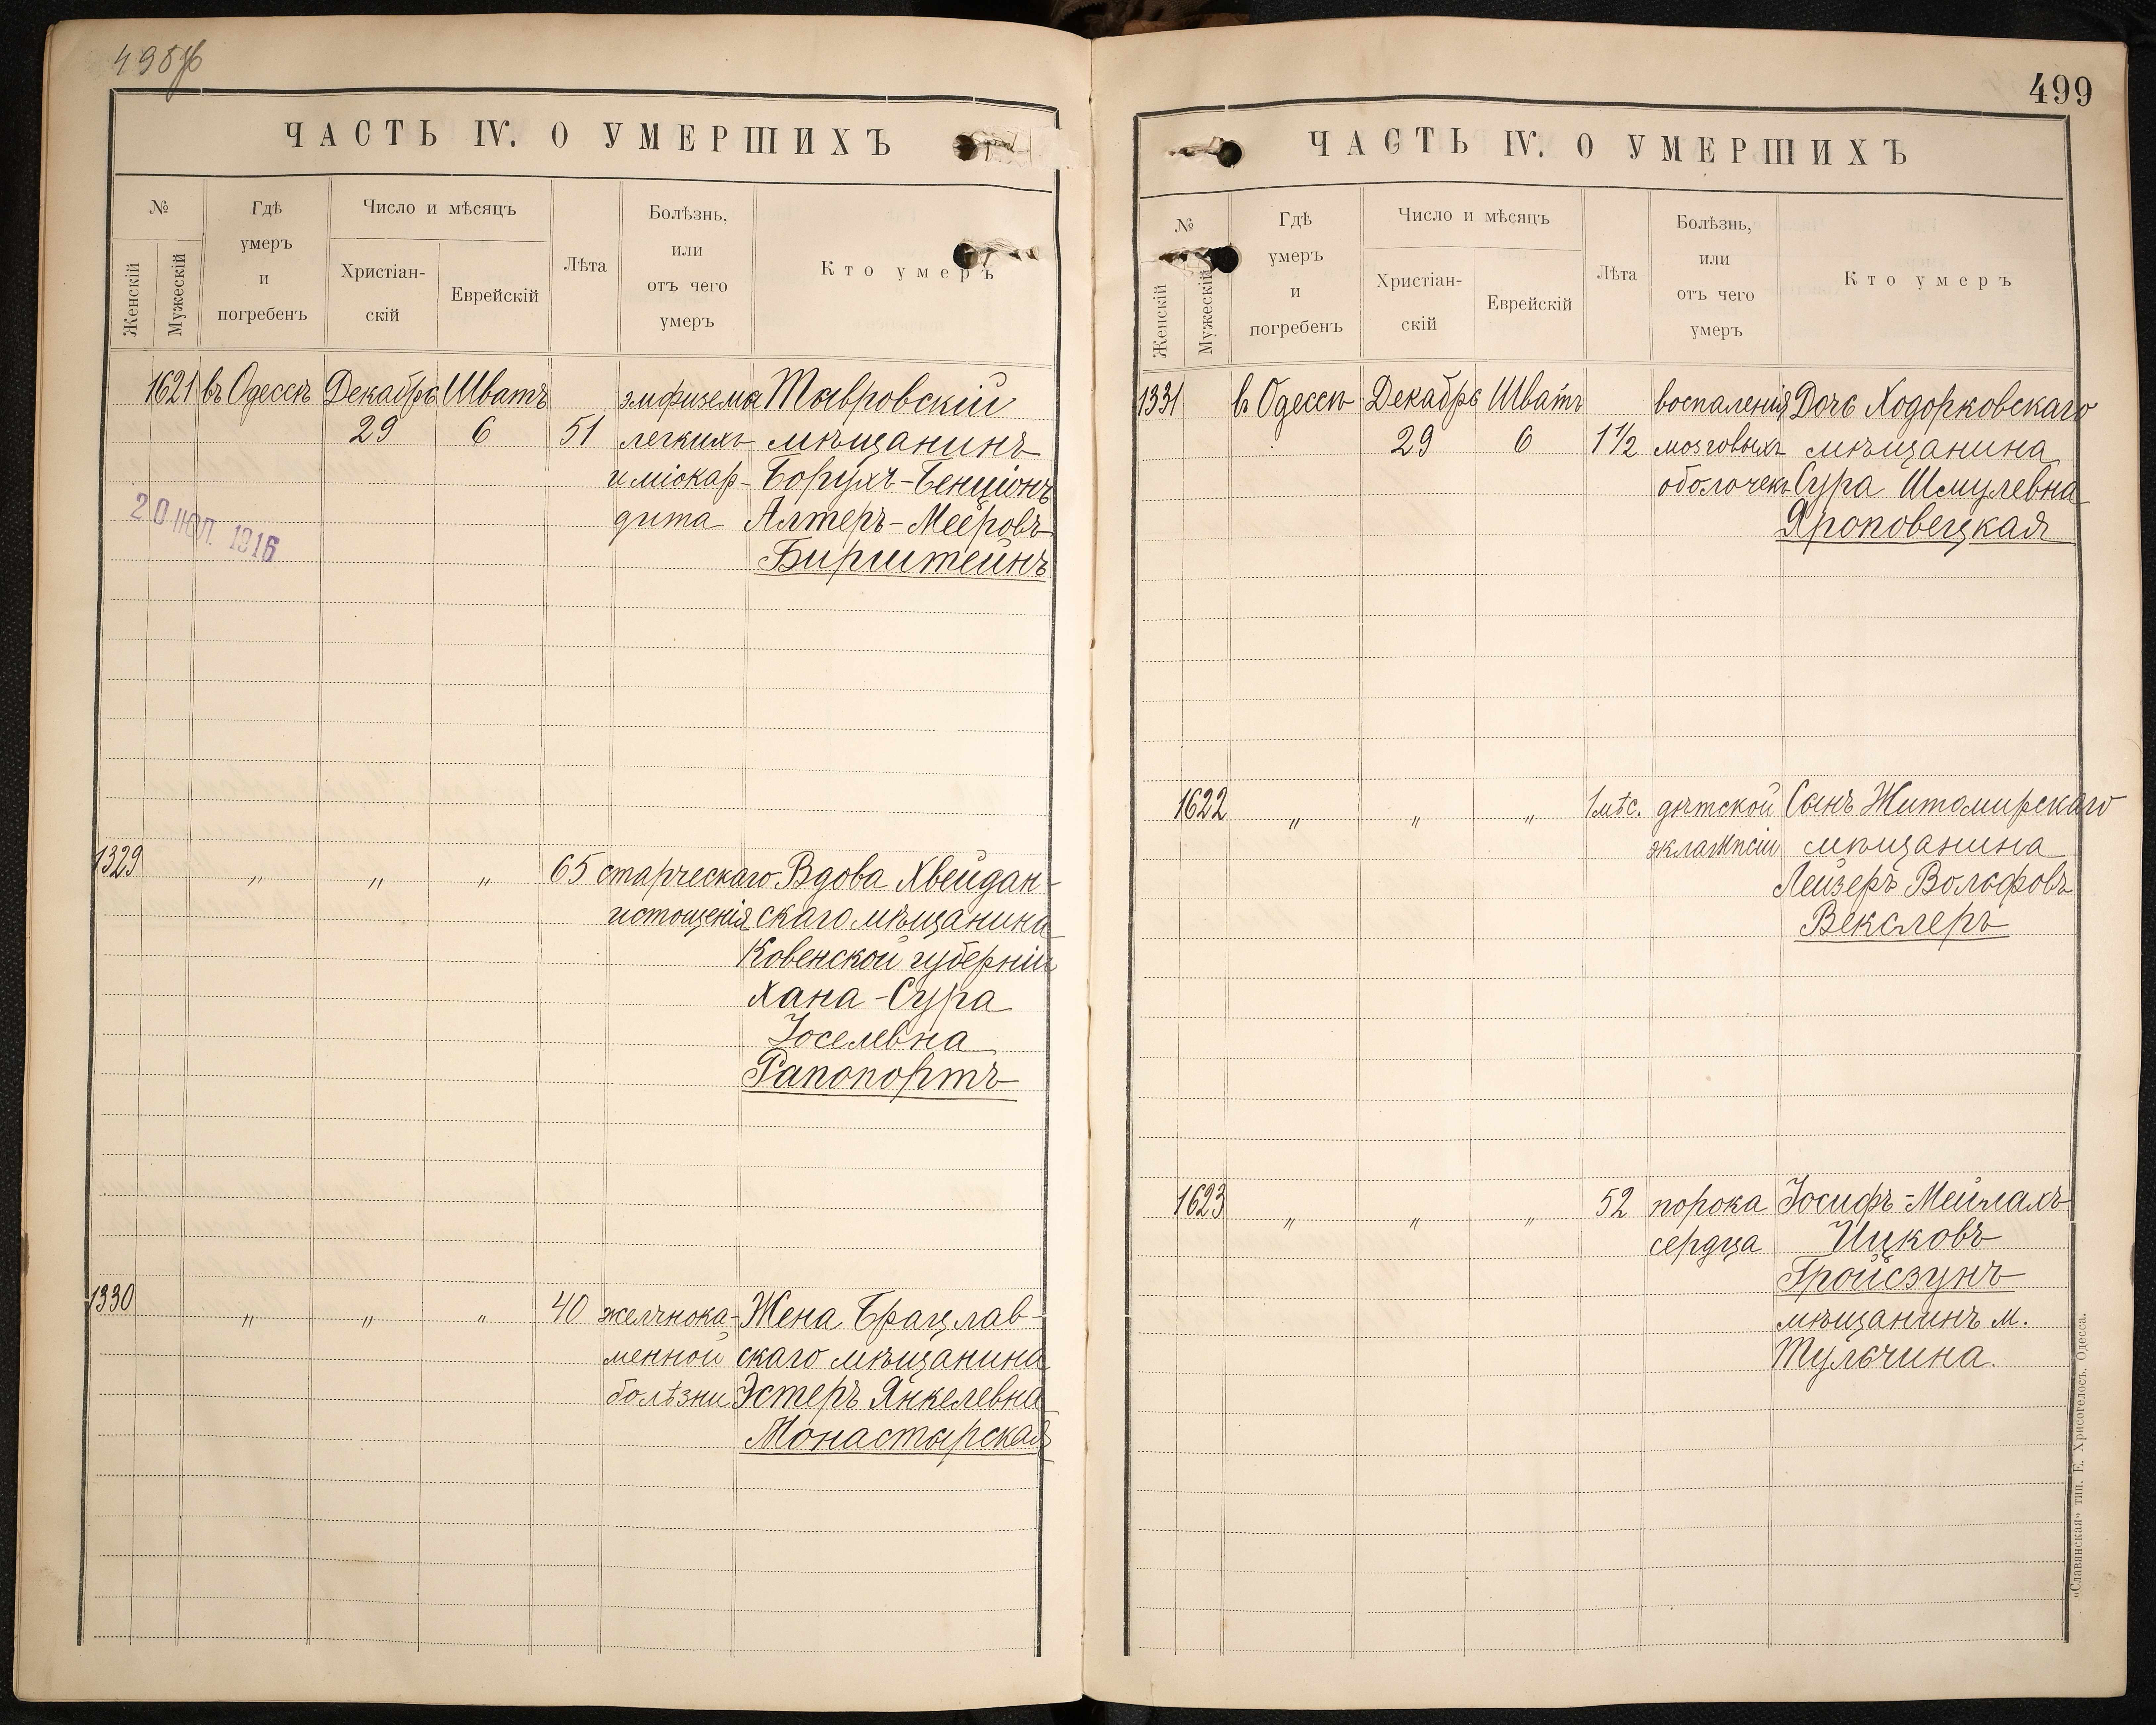 498 об
ЧАСТЬ IV. О УМЕРШИХЪ
№
Женскій
Мужескій
Гдѣ умеръ и погребенъ
Число и мѣсяцъ
Христіан-
скій
Еврейскій
Лѣта
Болѣзнь,
или
отъ чего
умеръ
Кто умеръ
1621 въ Одессѣ Декабрь Шватъ эмфизема Тавровскій
29 6 51 легкихъ мѣщанинъ
и міокар- Борухъ-Бенціонъ
дита Алтеръ-Мееровъ
20 НОЯ. 1916
Бирштейнъ
1329 " " " 65 старческаго Вдова Хвейдан-
истощенія скаго мѣщанина
Ковенской губерніи
Хана-Сура
Іоселевна
Рапопортъ
1330 " " " 40 желчнока- Жена Брацлав-
менной скаго мѣщанина
болѣзни Эстеръ Янкелевна
Монастырская
499
ЧАСТЬ IV. О УМЕРШИХЪ
№
Женскій
Мужескій
Гдѣ
умеръ
и
погребенъ
Число и мѣсяцъ
Христіан-
скій
Еврейскій
Лѣта
Болѣзнь,
или
отъ чего
умеръ
Кто умеръ
1331 въ Одессѣ Декабрь Шватъ воспаленія Дочь Ходорковскаго
29 6 1 1/2 мозговыхъ мѣщанина
оболочекъ Сура Шмулевна
Яроповецкая
1622 " " " 1 мѣс. дѣтской Сынъ Житомирскаго
эклампсіи мѣщанина
Лейзеръ Вольфовъ
Векслеръ
1623 " " " 52 порока Іосифъ-Мейлахъ
сердца Ицковъ
Гройсзунъ
мѣщанинъ м.
Тульчина.
«Славянская» тип. Е. Хрисогелосъ. Одесса.